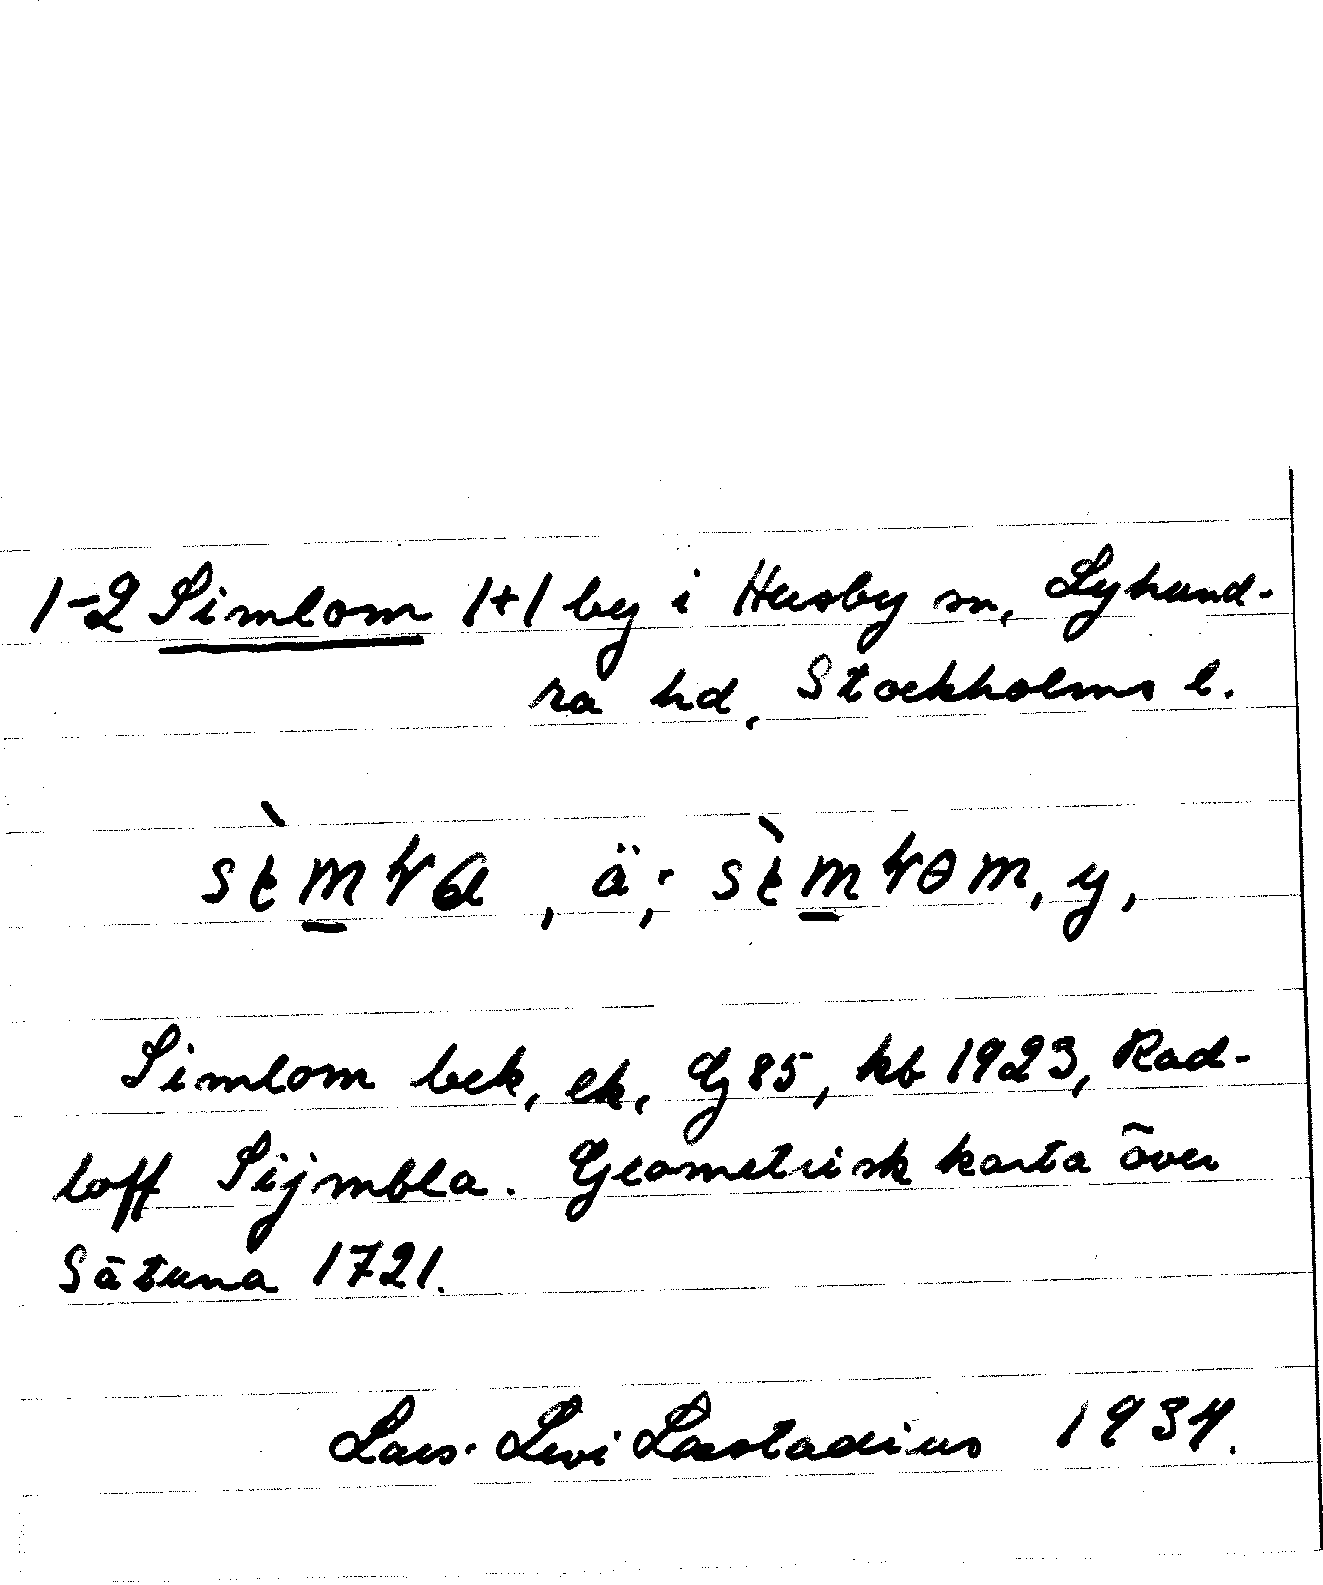 1-2 Simlom 1+1 by i Husby sn, Lyhund-
ra hd, Stockholms l.
, ä; , y,
Simlom bek, ek, G 85, kb 1923, Rad-
loff Sijmbla. Geometrisk karta över
Sätuna 1721.
Lars-Levi Læstadius 1934.